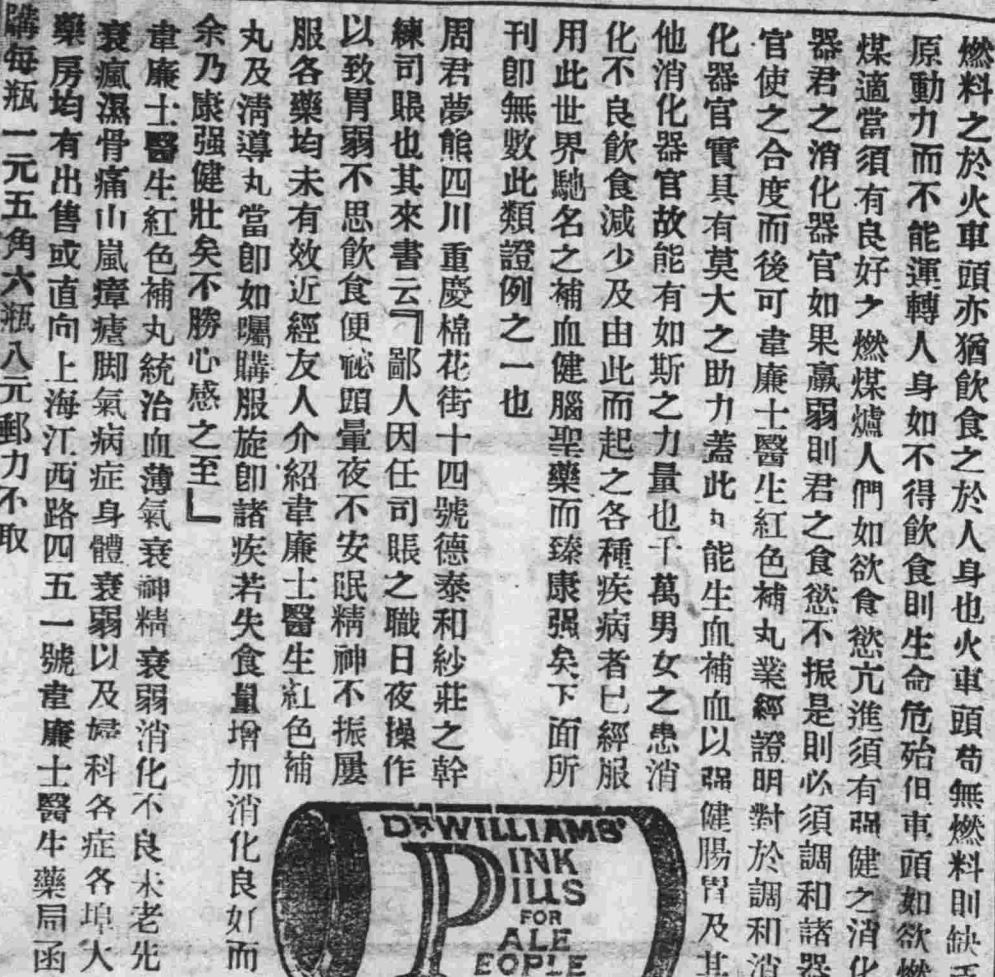 燃料之於火車頭亦猶飲食之於人身也火車頭苟無燃料則缺乏
原動力而不能運轉人身如不得飲食則生命危殆但車頭如欲燃
煤適當須有良好之燃煤爐人們如欲食慾亢進須有强健之消化
器君之消化器官如果羸弱則君之食慾不振是則必須調和諸器
官使之合度而後可韋廉士醫生紅色補丸業經證明對於調和消
化器官實具有莫大之助力蓋此丸能生血補血以强健腸胃及其
他消化器官故能有如斯之力量也千萬男女之患消
化不良飲食減少及由此而起之各種疾病者已經服
用此世界馳名之補血健腦聖藥而臻康强矣下面所
刊卽無數此類證例之一也
周君夢熊四川重慶棉花街十四號德泰和紗莊之幹
練司賬也其來書云『鄙人因任司賬之職日夜操作
以致胃弱不思飲食便祕頭暈夜不安眠精神不振屢
服各藥均未有效近經友人介紹韋廉士醫生紅色補
丸及淸導丸當卽如囑購服旋卽諸疾若失食量增加消化良好而
余乃康强健壯矣不勝心感之至』
韋廉士醫生紅色補丸統治血薄氣衰神精衰弱消化不良未老先
衰瘋濕骨痛山嵐瘴瘧脚氣病症身體衰弱以及婦科各症各埠大
藥房均有出售或直向上海江西路四五一號韋廉士醫生藥局函
購每瓶一元五角六瓶八元郵力不取
DR WILLIAMS'
PINK
PILLS
FOR
PALE
PEOPLE